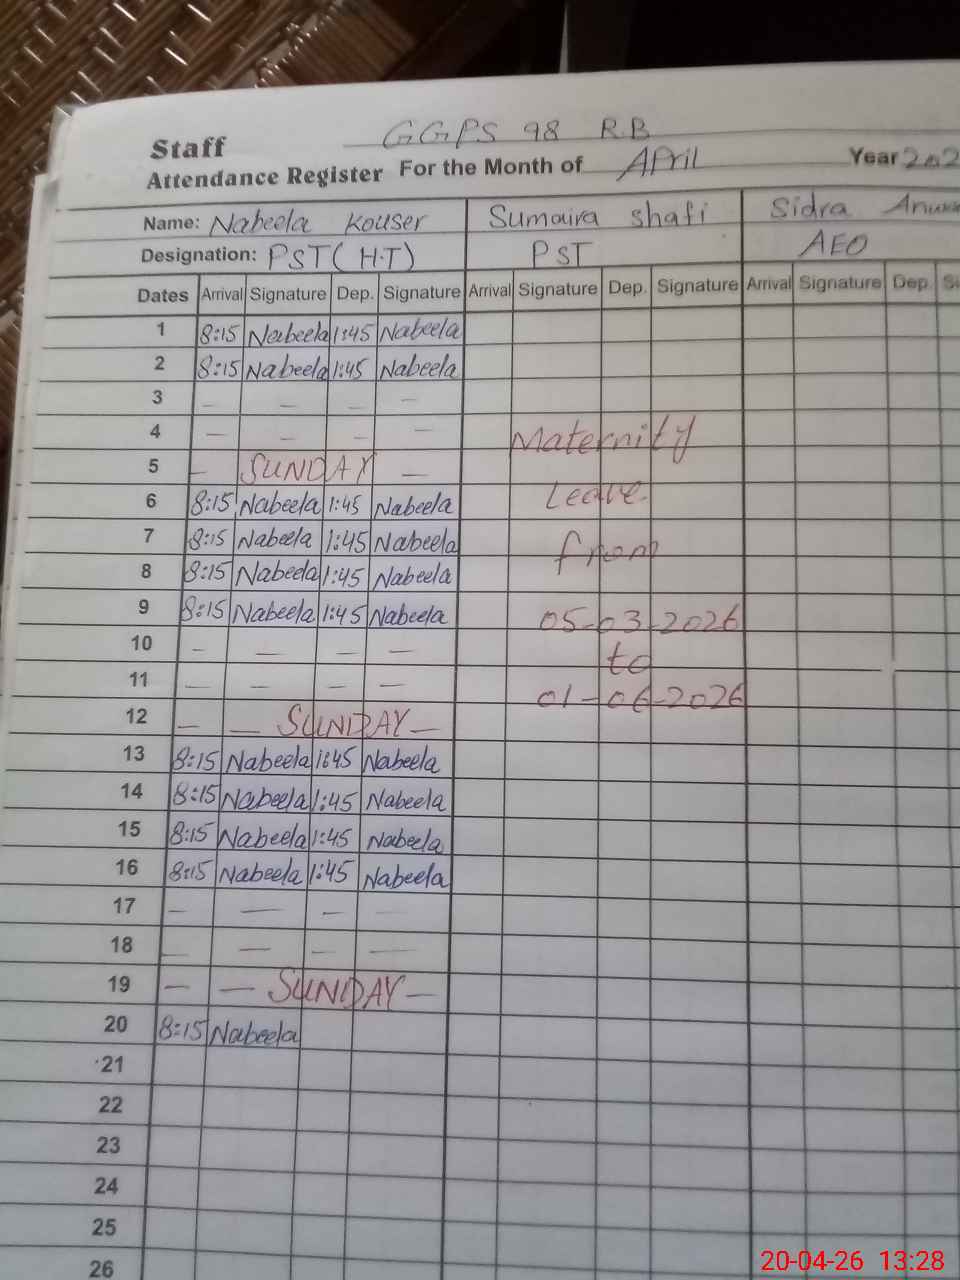 GGPS 98 R.B
Staff
Attendance Register For the Month of April Year 202
Name: Nabeela Kouser Sumaira Shafi Sidra
Designation: PST (H.T) PST AEO
Dates Arrival Signature Dep. Signature Arrival Signature Dep. Signature Arrival Signature Dep.
1 8:15 Nabeela 1:45 Nabeela
2 8:15 Nabeela 1:45 Nabeela
3 — — — —
4 — — — —
5 — SUNDAY —
6 8:15 Nabeela 1:45 Nabeela
7 8:15 Nabeela 1:45 Nabeela
8 8:15 Nabeela 1:45 Nabeela
9 8:15 Nabeela 1:45 Nabeela
10 — — — —
11 — — — —
12 — — SUNDAY —
13 8:15 Nabeela 1:45 Nabeela
14 8:15 Nabeela 1:45 Nabeela
15 8:15 Nabeela 1:45 Nabeela
16 8:15 Nabeela 1:45 Nabeela
17 — — — —
18 — — — —
19 — — SUNDAY —
20 8:15 Nabeela
21
22
23
24
25
26
Maternity
Leave
from
05-03-2026
to
01-06-2026
20-04-26 13:28